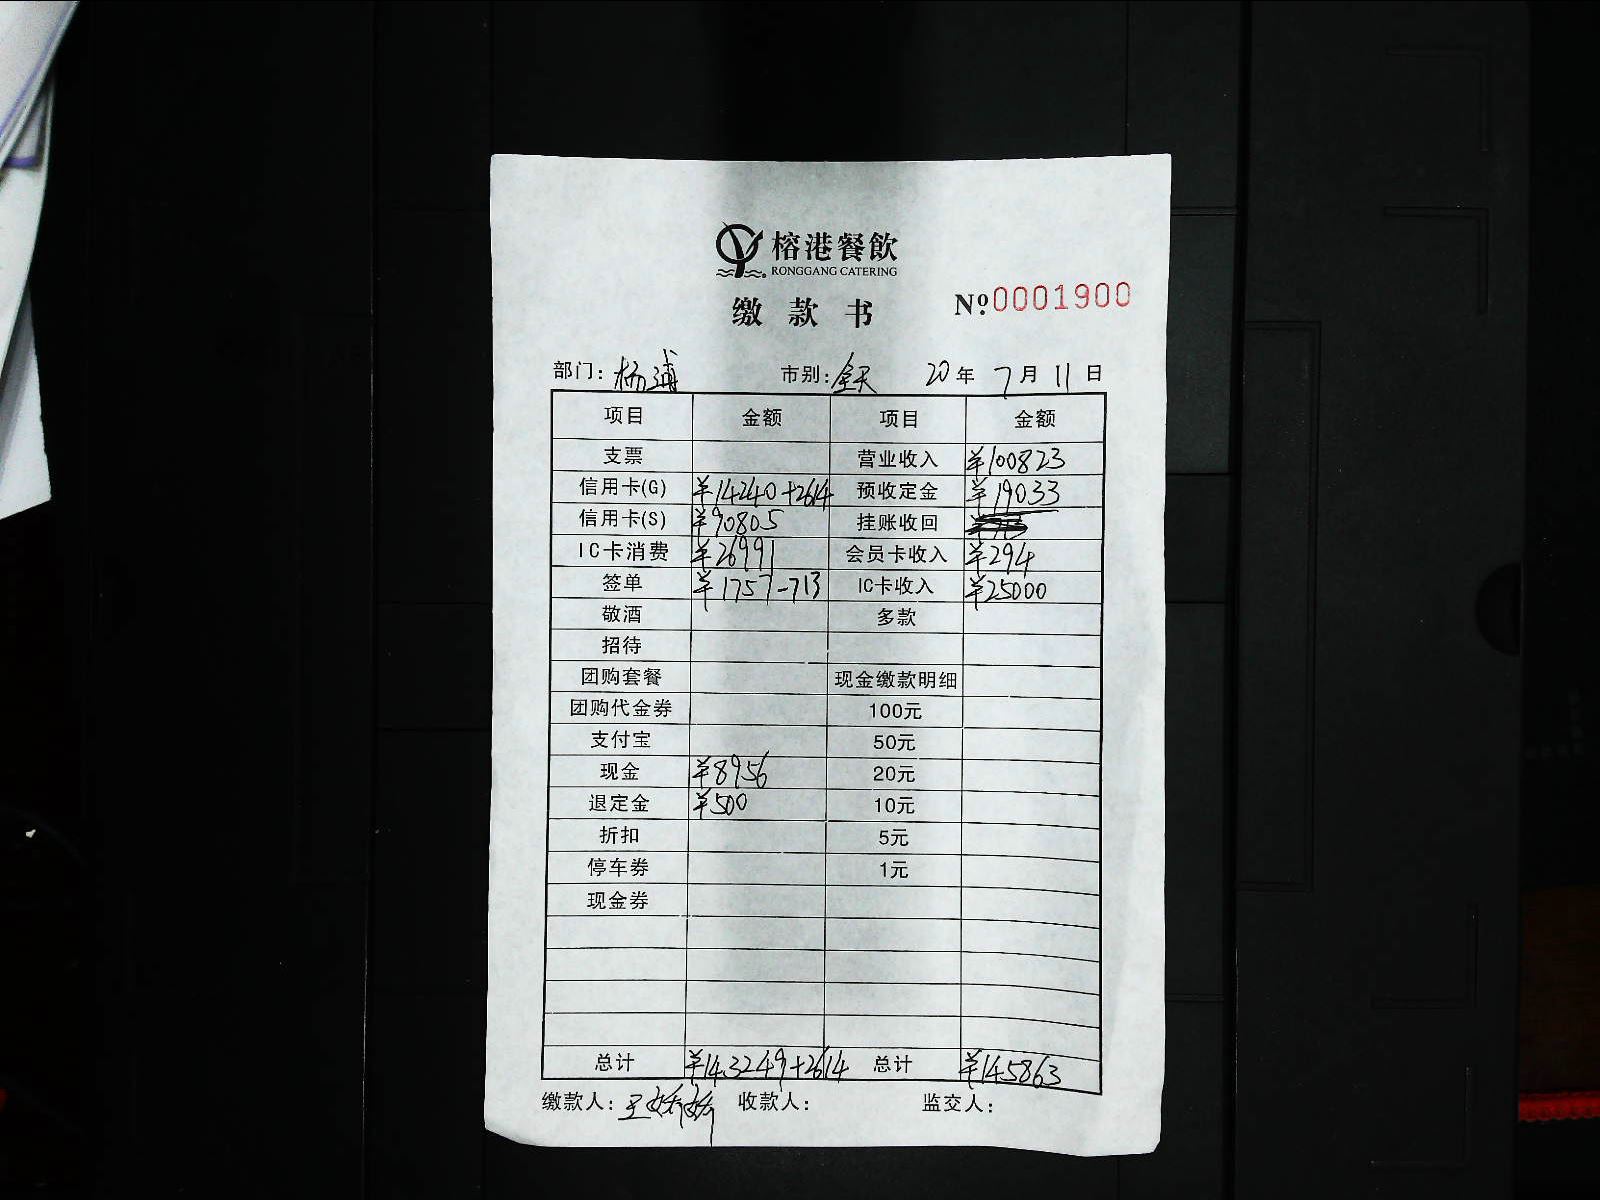 榕港餐飲
RONGGANG CATERING
缴款书 №0001900
部门：杨浦 市别：全天 20年 7月 11日
项目 金额 项目 金额
支票 营业收入 ¥100823
信用卡(G) ¥14240+2614 预收定金 ¥19033
信用卡(S) ¥90805 挂账收回
IC卡消费 ¥26991 会员卡收入 ¥294
签单 ¥1757-713 IC卡收入 ¥25000
敬酒 多款
招待
团购套餐 现金缴款明细
团购代金券 100元
支付宝 50元
现金 ¥8956 20元
退定金 ¥500 10元
折扣 5元
停车券 1元
现金券
总计 ¥143249+2614 总计 ¥145863
缴款人：王 收款人： 监交人：